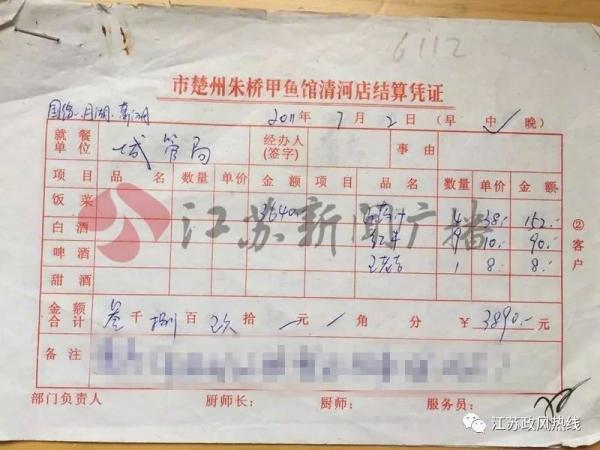 6112
市楚州朱桥甲鱼馆清河店结算凭证
2011年 7月 2日（早 中✓ 晚）
就餐单位 城管局 经办人(签字) 事由
项目 品名 数量 单价 金额 项目 品名 数量 单价 金额
饭菜 3640 4 38.- 152.-
白酒 9 10.- 90.-
啤酒 王老吉 1 8.- 8.-
甜酒
金额合计 叁千捌百玖拾 元 角 分 ¥ 3890.- 元
备注
②客户
部门负责人 厨师长： 厨师： 服务员：
江苏新闻广播
江苏政风热线